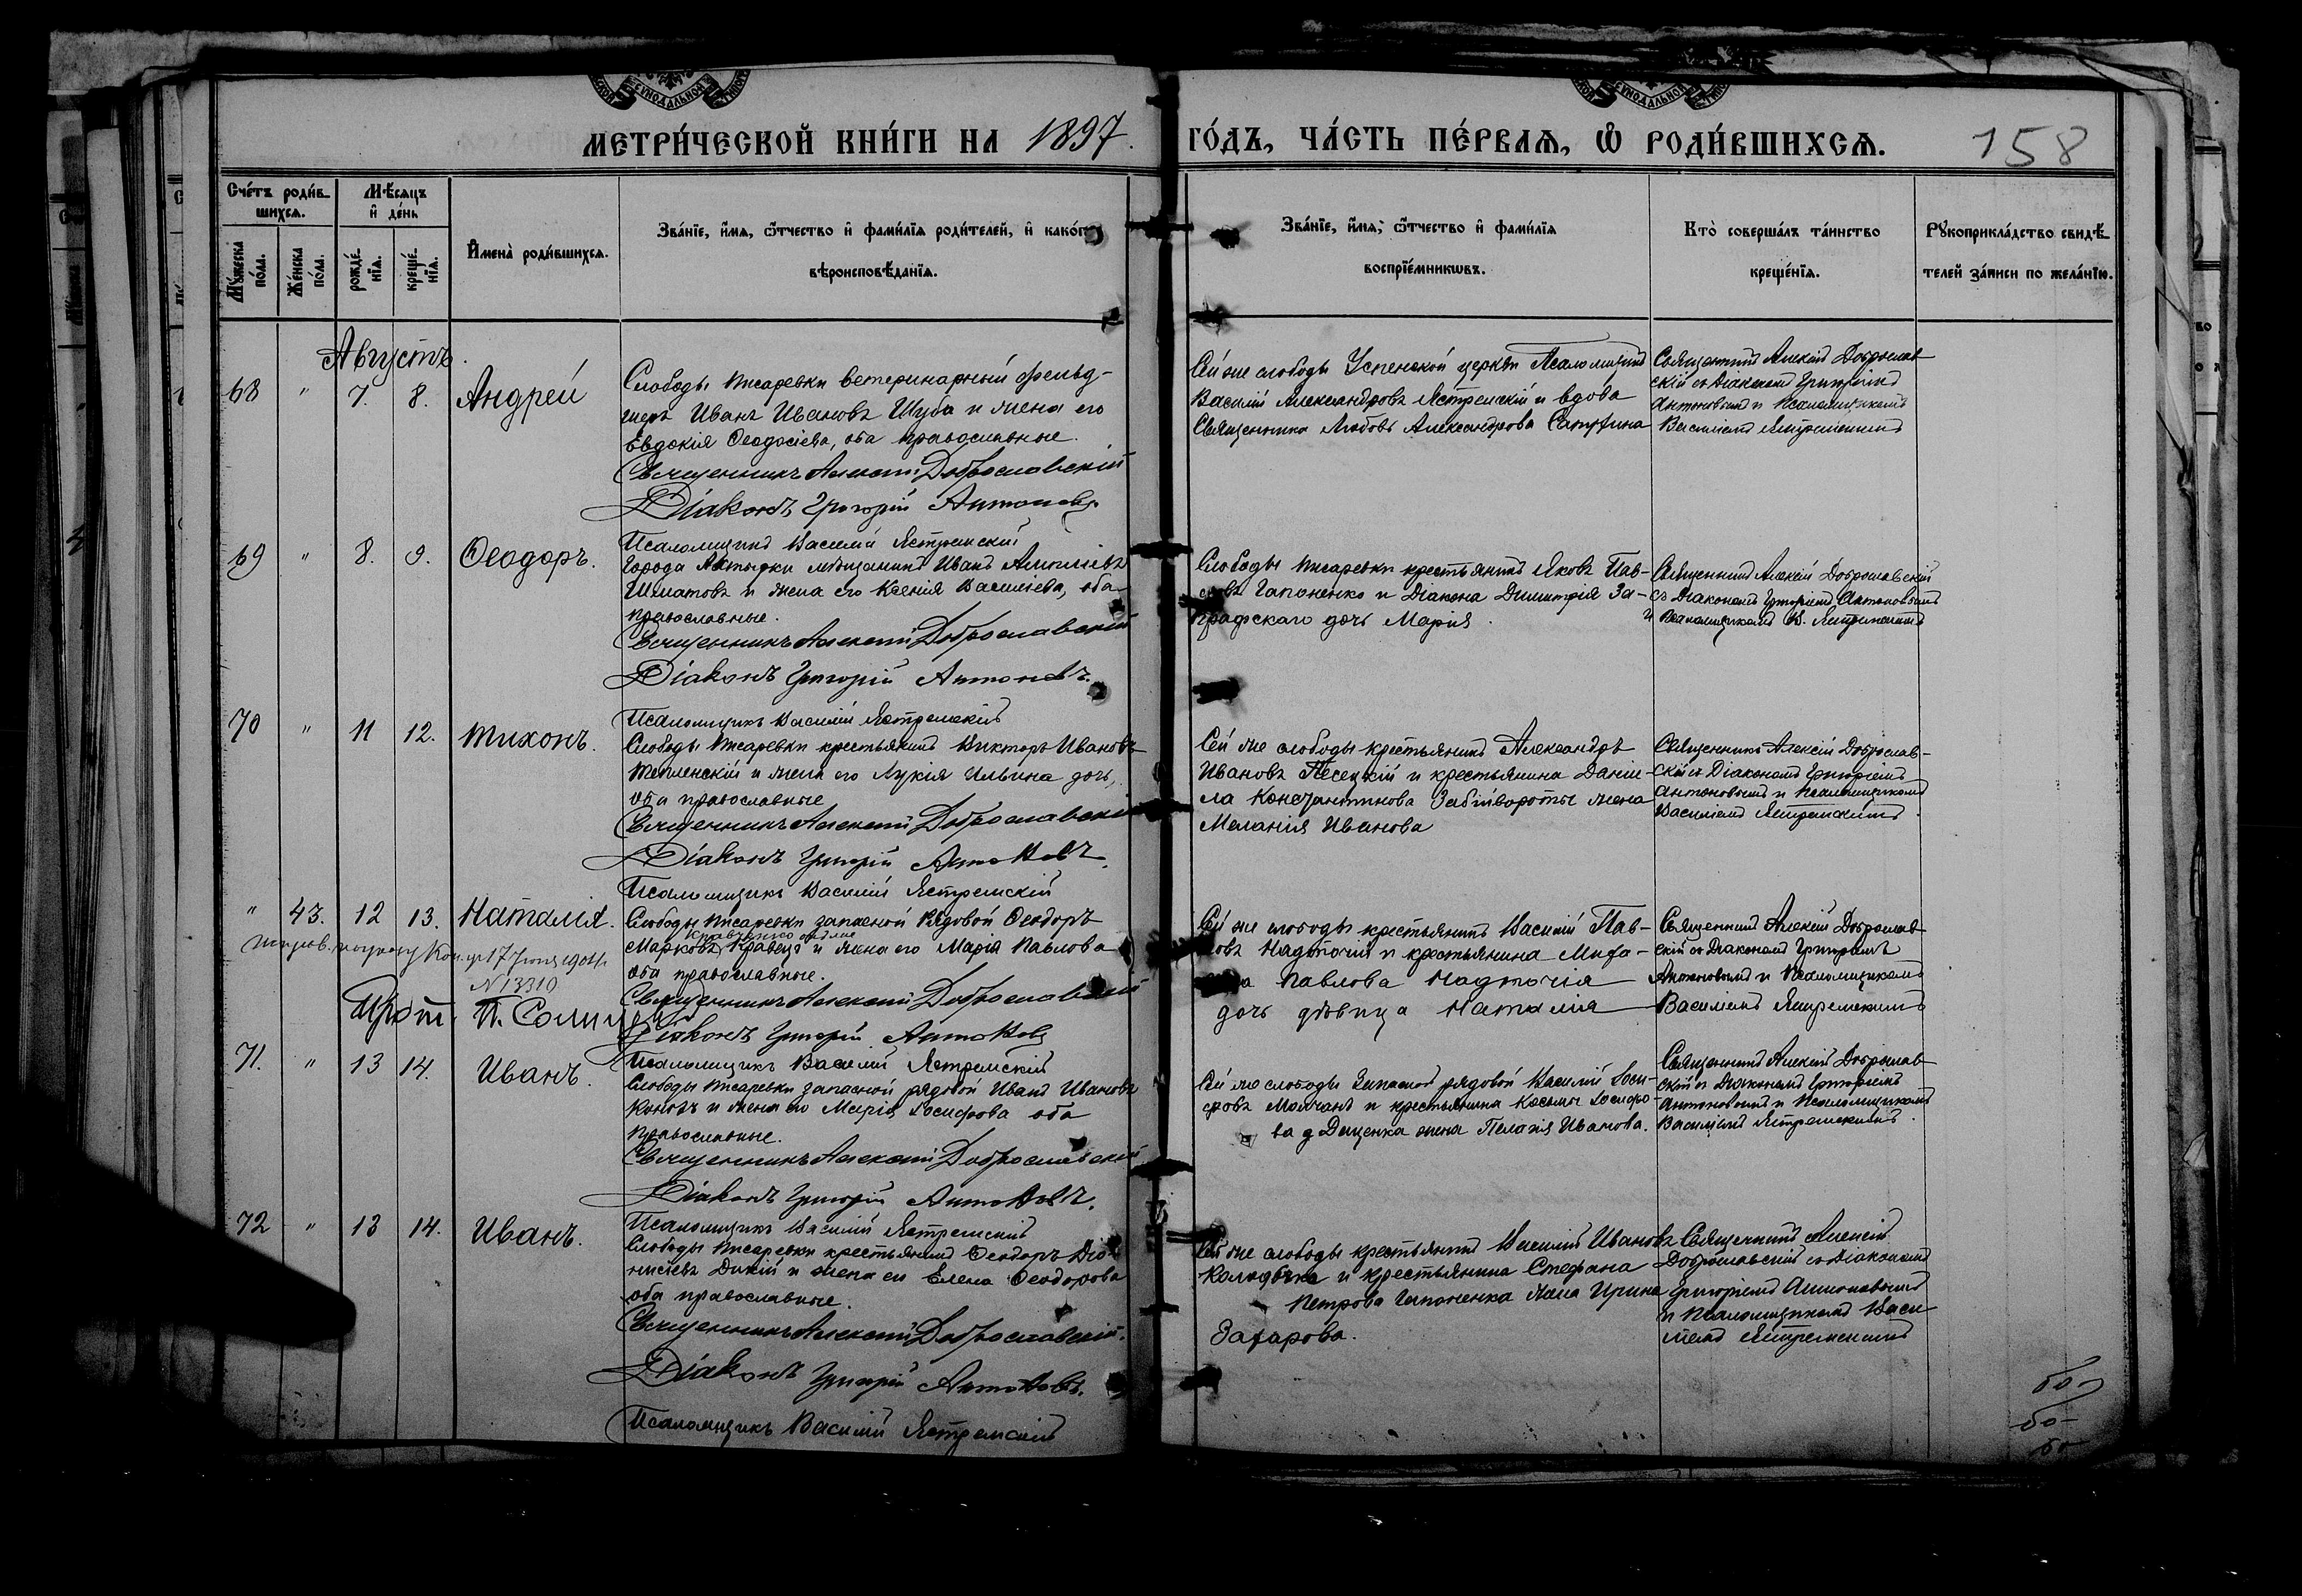 МЕТРИ́ЧЕСКОЙ КНИ́ГИ НА 1897.
ГО́ДЪ, ЧА́СТЬ ПЕ́РВАѦ, Ѽ РОДИ́ВШИХСѦ.
158
Сче́тъ роди́в-
шихсѧ.
Мѣ́сѧцъ
и҆ де́нь
Мꙋ́жеска
по́ла.
Же́нска
по́ла.
рожде́-
нїѧ.
креще́-
нїѧ.
И҆мена̀ роди́вшихсѧ.
Зва́нїе, и҆́мѧ, ѻ҆́тчество и҆ фами́лїѧ роди́телей, и҆ како́гѡ
вѣроисповѣ́данїѧ.
Зва́нїе, и҆́мѧ, ѻ҆́тчество и҆ фами́лїѧ
воспрїе́мникѡвъ.
Кто̀ соверша́лъ та́инство
креще́нїѧ.
Рꙋкоприкла́дство свидѣ́-
телей за́писи по жела́нїю.
Августъ.
68 " 7. 8. Андрей
Слободы Писаревки ветеринарный фельд-
шеръ Иванъ Ивановъ Шуба и жена его
Евдокія Ѳеодосіева, оба православные.
Священникъ Алексій Доброславскій
Діаконъ Григорій Антоновъ
Псаломщикъ Василій Ястремскій
Сей же слободы Успенской церкви Псаломщикъ
Василій Александровъ Ястремскій и вдова
Священника Любовь Александрова
Священникъ Алексій Доброслав-
скій съ Діакономъ Григоріемъ
Антоновымъ и Псаломщикомъ
Василіемъ Ястремскимъ
69 " 8. 9. Ѳеодоръ.
Города Ахтырки мѣщанинъ Иванъ
и жена его Ксенія Василіева, оба
православные.
Священникъ Алексій Доброславскій
Діаконъ Григорій Антоновъ.
Псаломщикъ Василій Ястремскій
Слободы Писаревки крестьянинъ Яковъ Пав-
ловъ Гапоненко и Діакона Димитрія За-
графскаго дочь Марія.
Священникъ Алексій Доброславскій
съ Діакономъ Григоріемъ Антоновымъ
и Псаломщикомъ В. Ястремскимъ
70 " 11 12. Тихонъ.
Слободы Писаревки крестьянинъ Викторъ Ивановъ
Тепленскій и жена его Лукія Ильина дочь,
оба православные
Священникъ Алексій Доброславскій
Діаконъ Григорій Антоновъ.
Псаломщикъ Василій Ястремскій
Сей же слободы крестьянинъ Александръ
Ивановъ Песецкій и крестьянина Даніи-
ла Константинова Забійвороты жена
Меланія Иванова
Священникъ Алексій Доброслав-
скій съ Діакономъ Григоріемъ
Антоновымъ и Псаломщикомъ
Василіемъ Ястремскимъ.
" 43. 12 13. Наталія.
Слободы Писаревки запасной Рядовой Ѳеодоръ
Марковъ Кравецъ и жена его Марія Павлова
оба православные.
17 1901 г.
N 13310
Прот. П.
Священникъ Алексій Доброславскій
Діаконъ Григорій Антоновъ
Псаломщикъ Василій Ястремскій
Сей же слободы крестьянинъ Василій Пав-
ловъ Надточій и крестьянина
Павлова Надточія
дочь дѣвица Наталія
Священникъ Алексій Доброслав-
скій съ Діакономъ Григоріемъ
Антоновымъ и Псаломщикомъ
Василіемъ Ястремскимъ
71. " 13 14. Иванъ.
Слободы Писаревки запасной рядовой Иванъ Ивановъ
и жена его Марія Іосифова оба
православные.
Священникъ Алексій Доброславскій
Діаконъ Григорій Антоновъ.
Псаломщикъ Василій Ястремскій
Сей же слободы Запасной рядовой Василій Іоси-
фовъ Молчанъ и крестьянина Косьмы Іосифо-
ва Даценка жена Пелагія Иванова.
Священникъ Алексій Доброслав-
скій съ Діакономъ Григоріемъ
Антоновымъ и Псаломщикомъ
Василіемъ Ястремскимъ.
72 " 13 14. Иванъ.
Слободы Писаревки крестьянинъ Ѳеодоръ Діо-
нисіевъ Дикій и жена его Елена Ѳеодорова
оба православные.
Священникъ Алексій Доброславскій.
Діаконъ Григорій Антоновъ.
Псаломщикъ Василій Ястремскій
Сей же слободы крестьянинъ Василій Ивановъ
и крестьянина Стефана
Петрова Гапоненка жена Ирина
Захарова.
Священникъ Алексій
Доброславскій съ Діакономъ
Григоріемъ Антоновымъ
и Псаломщикомъ Васи-
ліемъ Ястремскимъ